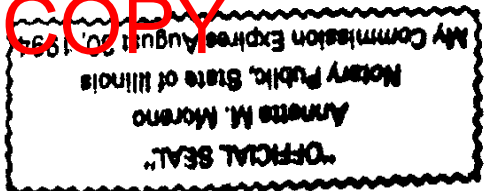 COPY
"OFFICIAL SEAL"
Annetta M. Moreno
Notary Public, State of Illinois
My Commission Expires August 30, 1994